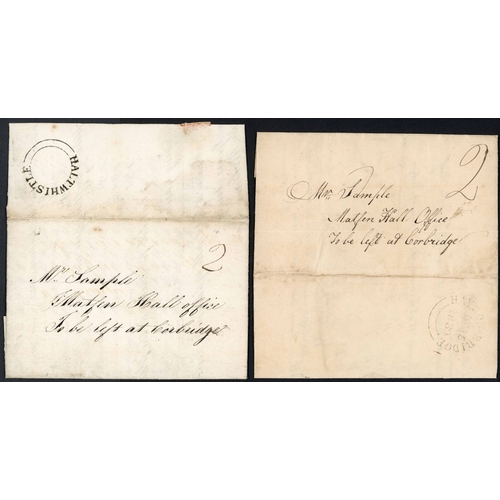 HALTWHISTLE
2
Mr. Sample
Matfen Hall office
To be left at Corbridge
2
Mr. Sample
Matfen Hall Office
To be left at Corbridge